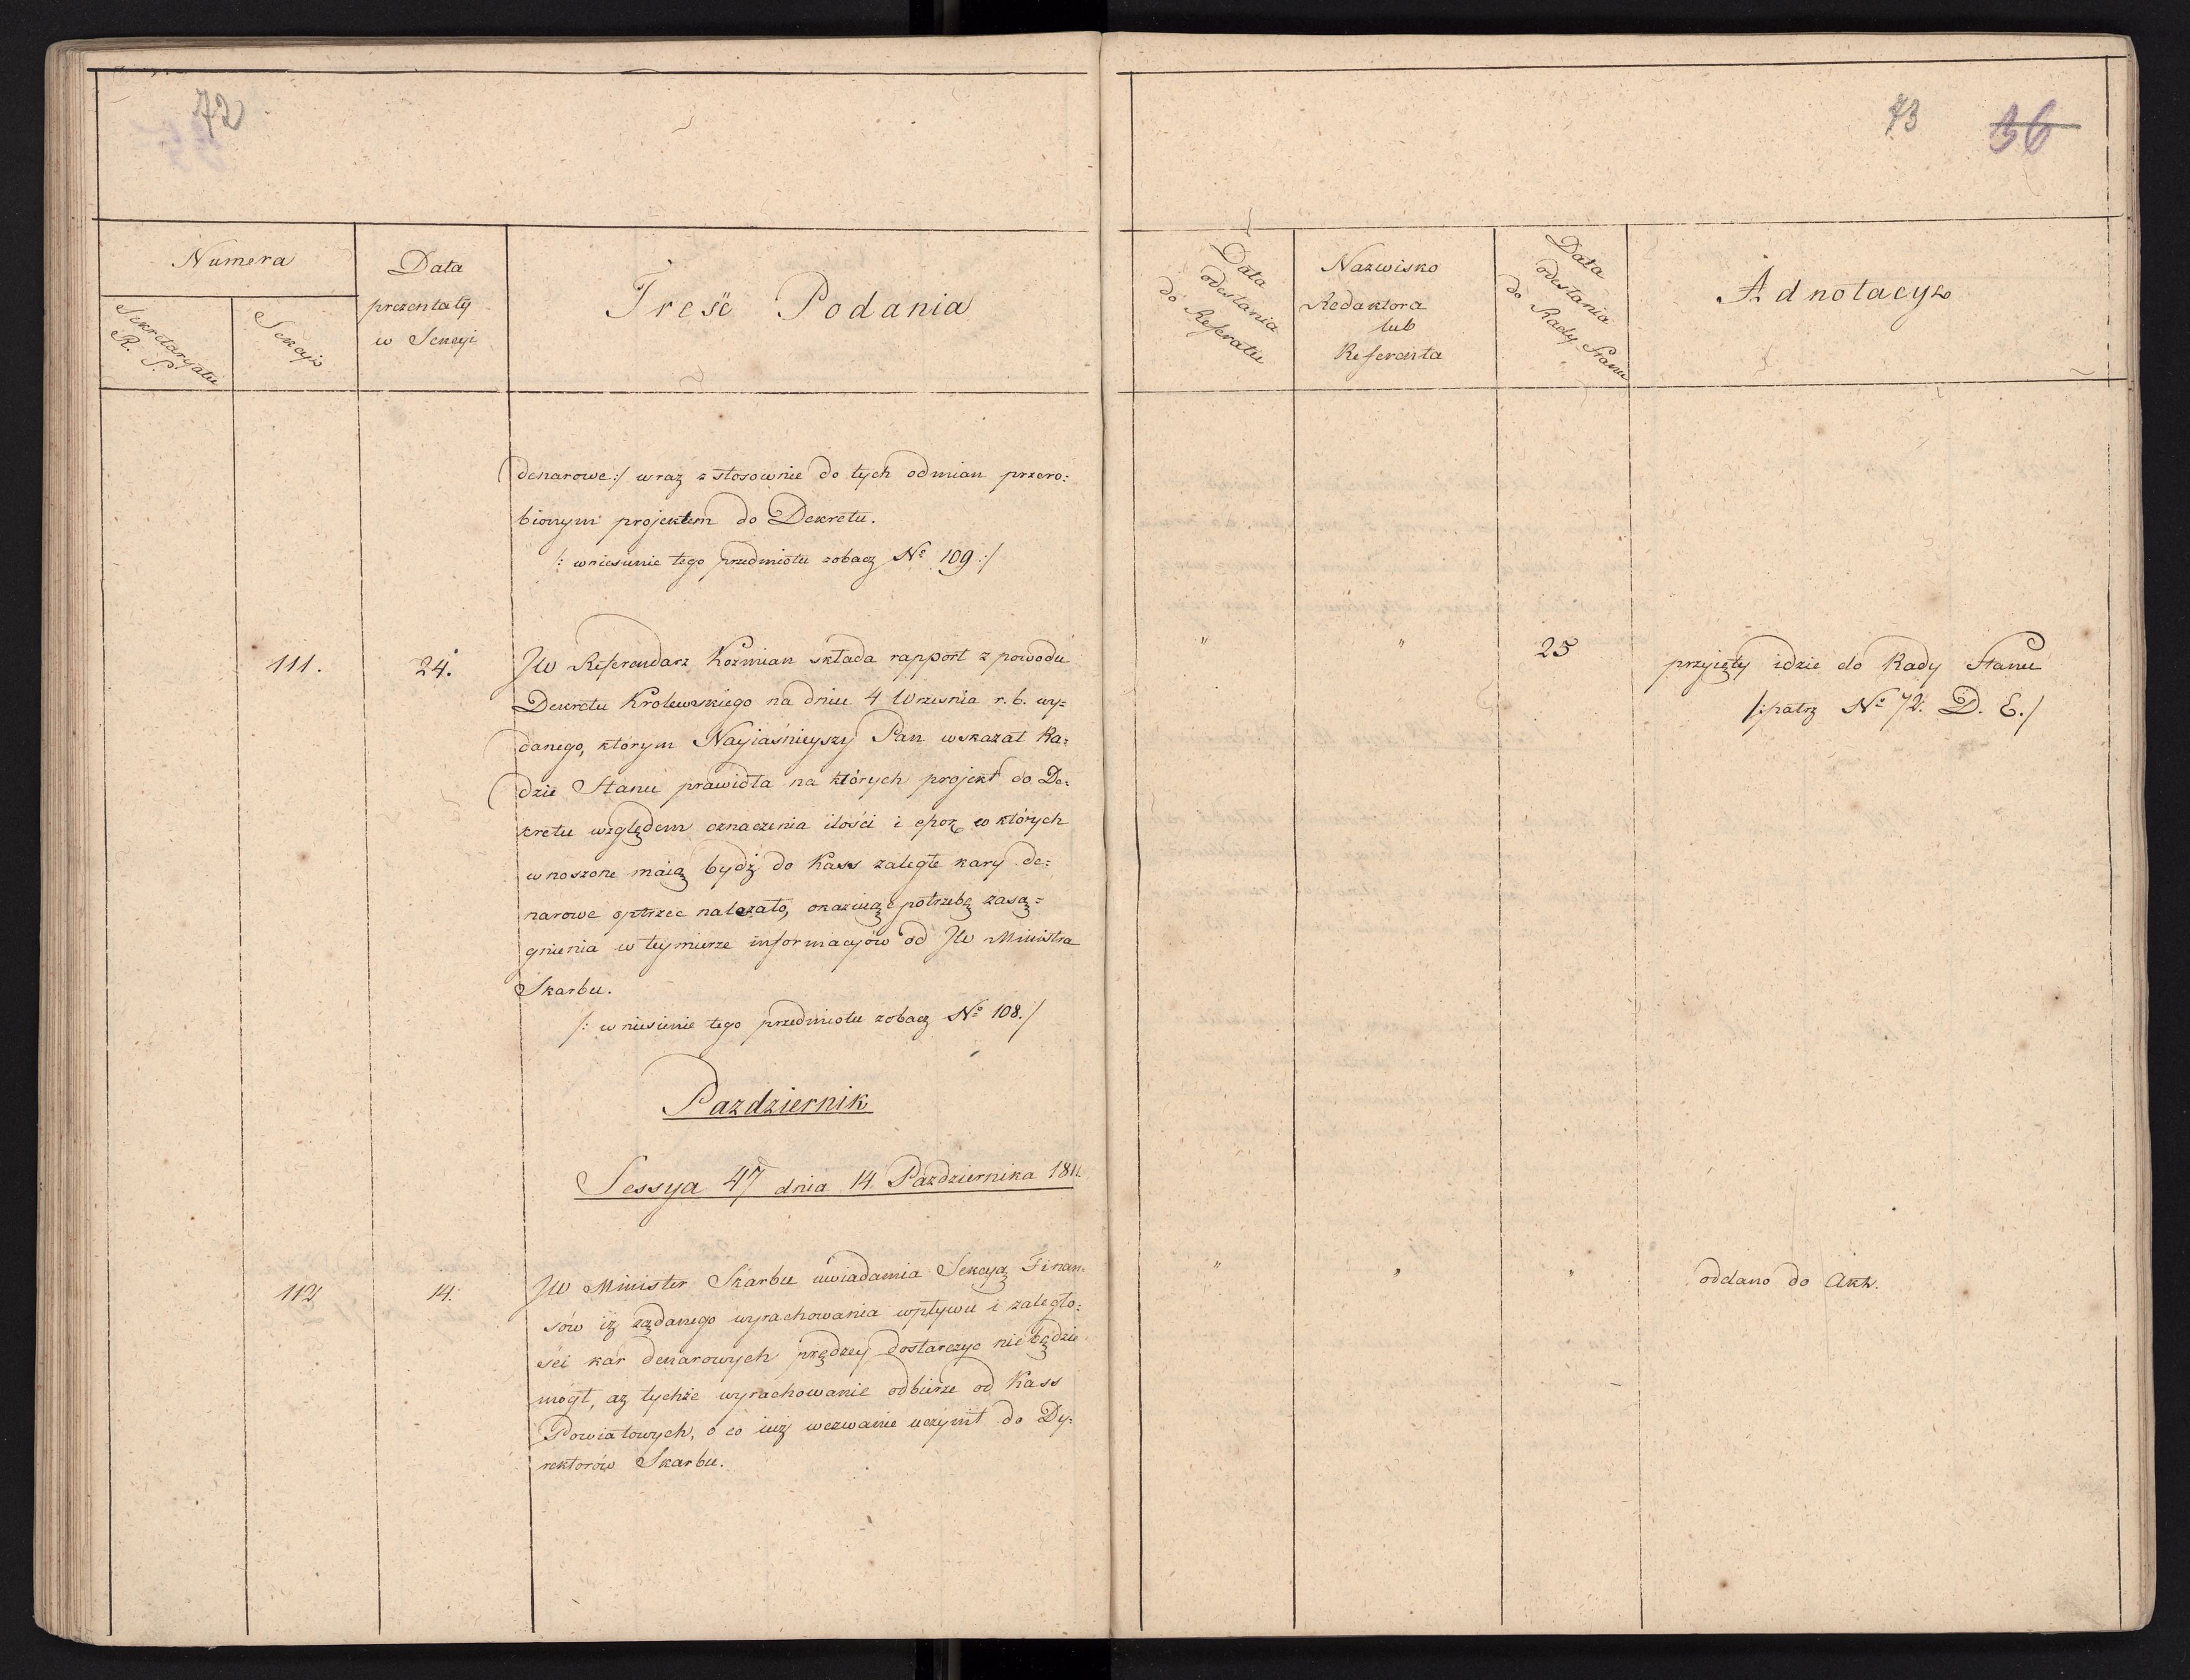 72
Numera
Sekretaryatu
R. S.
Sekcyi
Data
prezentaty
w Sekcyi
Treść Podania
denarowe :/ wraz z stosownie do tych odmian przero=
bionym projektem do Dekretu.
/: wniesienie tego przedmiotu zobacz Nº 109 :/
111.
24.
JW Referendarz Kozmian składa rapport z powodu
Dekretu Krolewskiego na dniu 4 Wrzesnia r. b. wy=
danego, którym Nayiaśnieyszy Pan wskazał Ra=
dzie Stanu prawidła na których projekt do De=
kretu względem oznaczenia ilości i epok w których
wnoszone maią bydź do Kass zaległe kary de=
narowe oprzec należało, okazuiąc potrzebę zasą=
gnienia w teymierze informacyów od JW Ministra
Skarbu.
/: wniesienie tego przedmiotu zobacz Nº 108. /
Pazdziernik
Sessya 47 dnia 14 Pazdziernika 1811.
112
14.
JW Minister Skarbu uwiadamia Sekcyą Finan=
sów iż żądanego wyrachowania wpływu i zaległo=
ści kar denarowych prędzey dostarczyc nie będzie
mógł, aż tychże wyrachowanie odbierze od Kass
Powiatowych, o co iuż wezwanie uczynił do Dy=
rektorów Skarbu.
73 36
Data
odesłania
do Referatu
Nazwisko
Redaktora
lub
Referenta
Data
odesłania
do Rady Stanu
Adnotacye
" " 25 przyięty idzie do Rady Stanu
/: patrz Nº 72. D. E. /
" " " oddano do Akt.